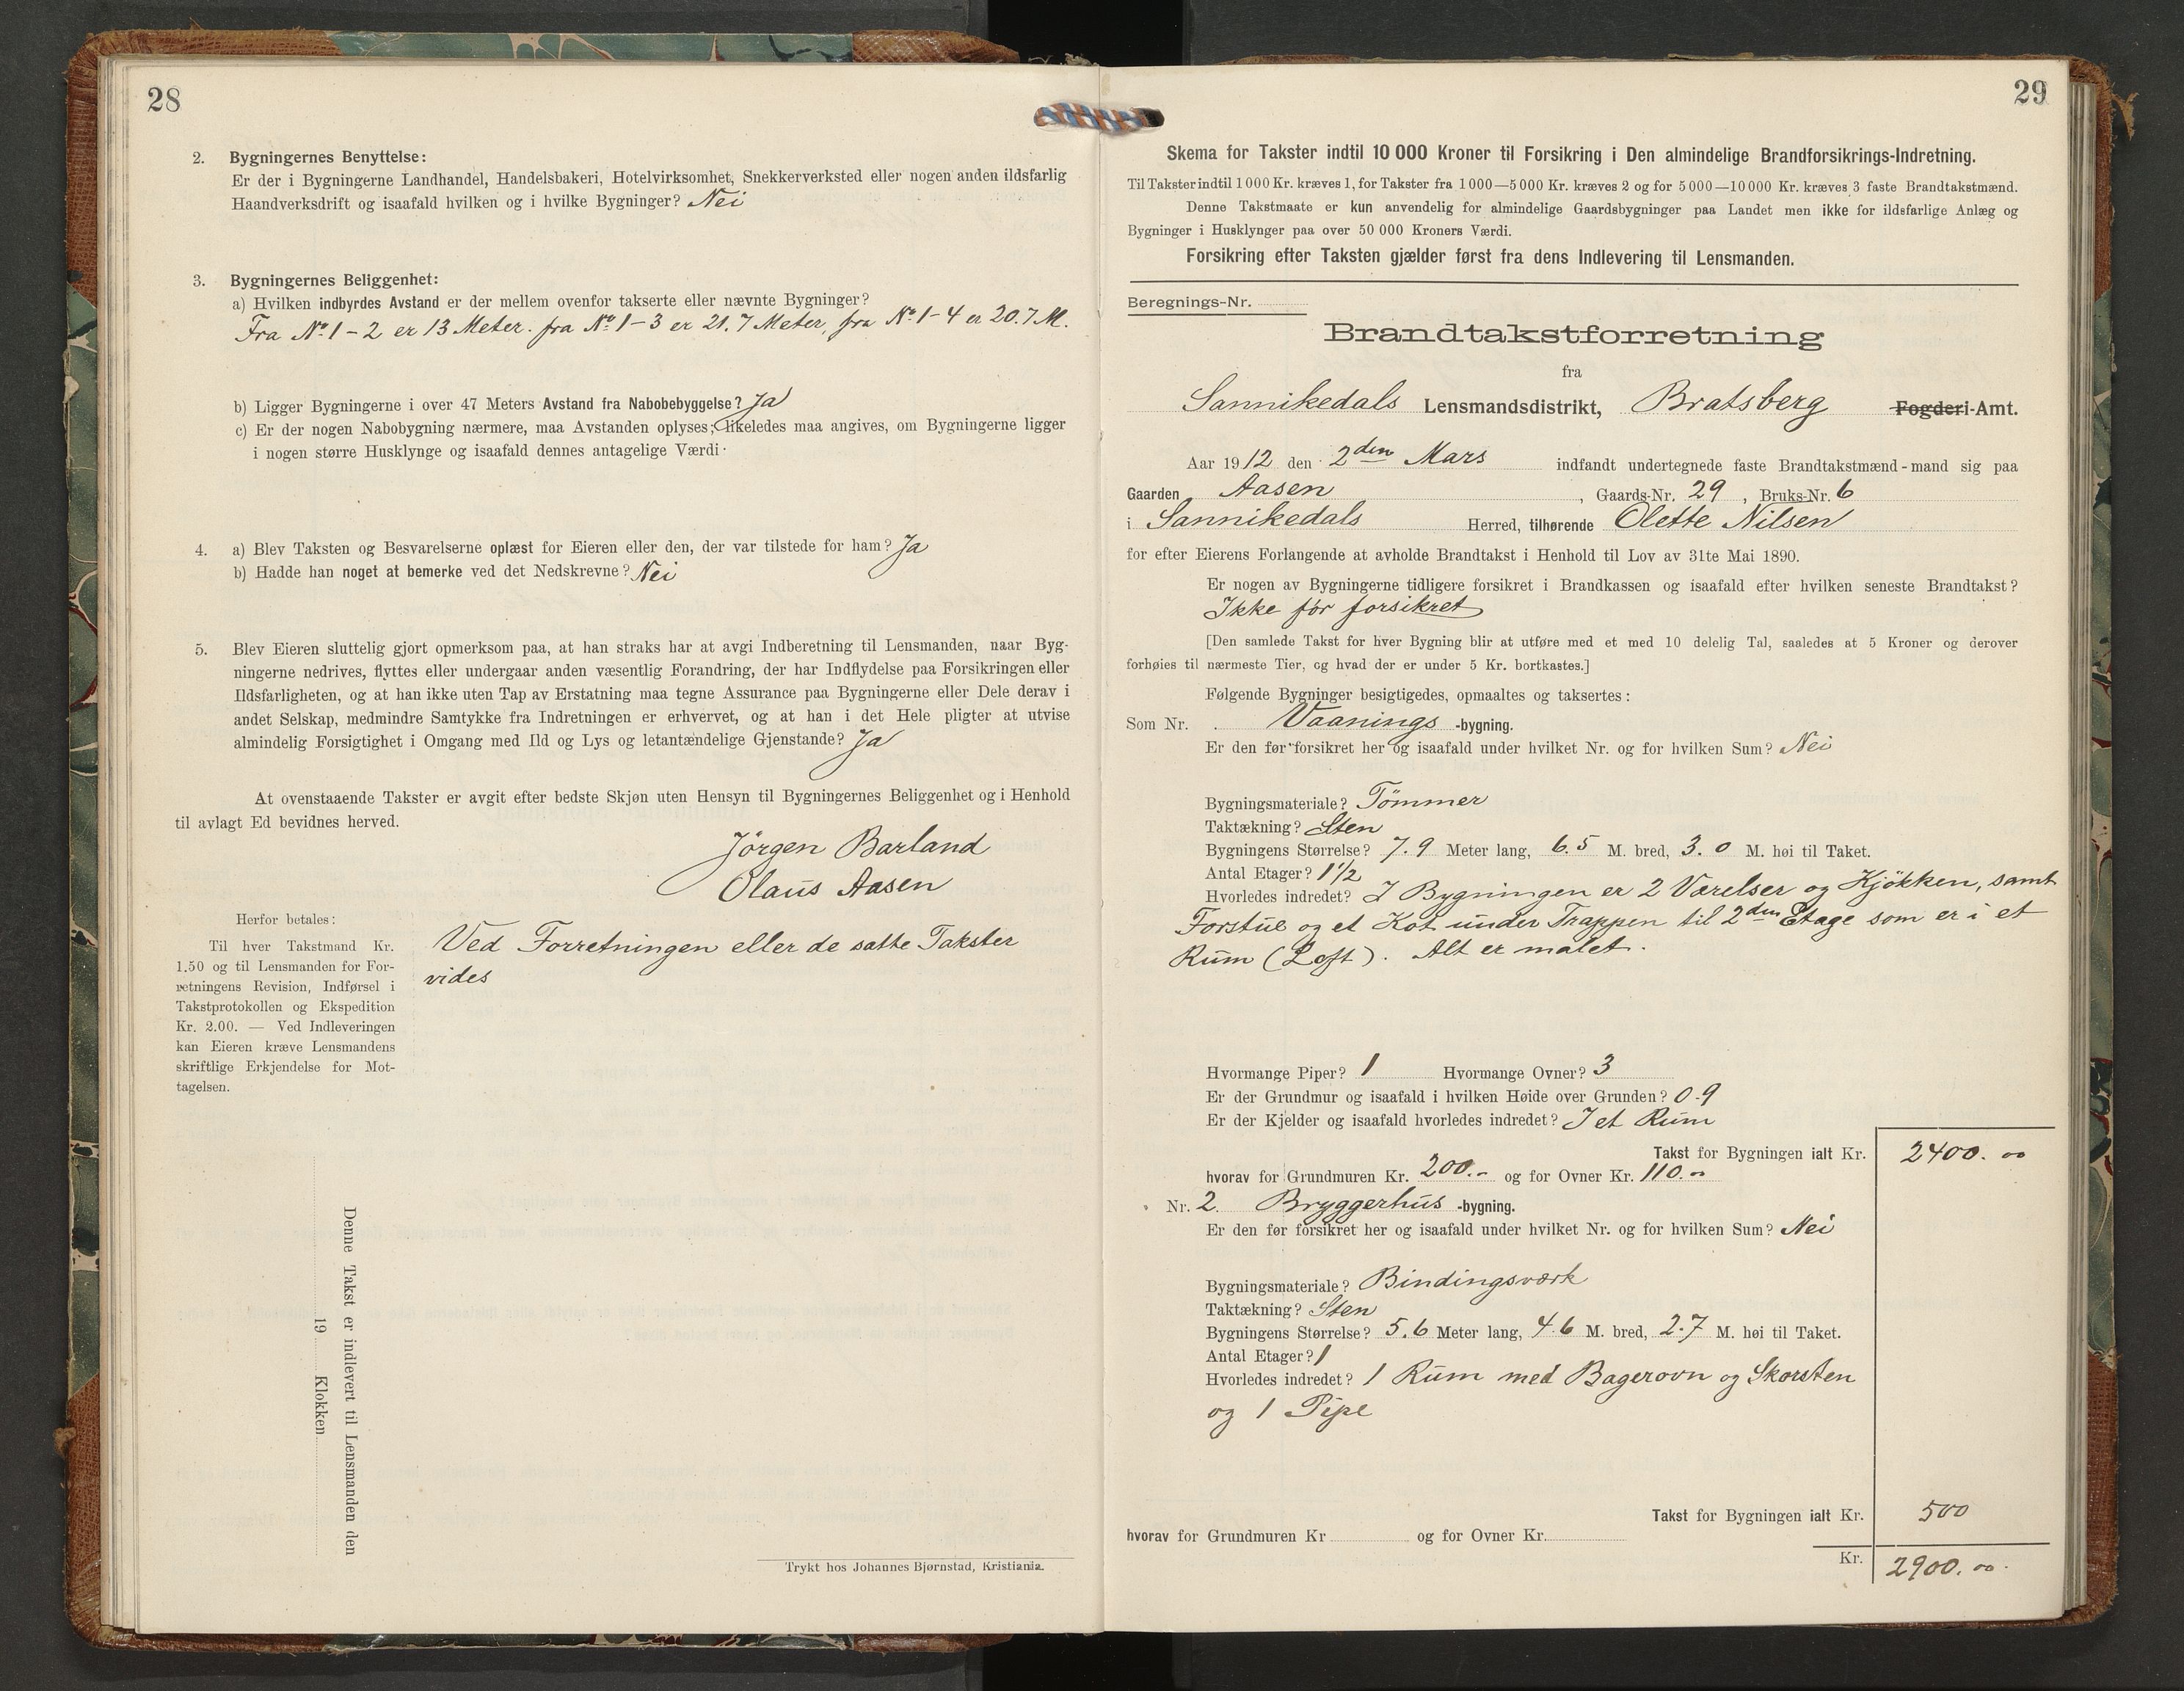 28
2. Bygningernes Benyttelse:
Er der i Bygningerne Landhandel, Handelsbakeri, Hotelvirksomhet, Snekkerverksted eller nogen anden ildsfarlig
Haandverksdrift og isaafald hvilken og i hvilke Bygninger? Nei
3. Bygningernes Beliggenhet:
a) Hvilken indbyrdes Avstand er der mellem ovenfor takserte eller nævnte Bygninger?
Fra No. 1-2 er 13 Meter. fra No. 1-3 er 21.7 Meter, fra No. 1-4 er 20.7 M.
b) Ligger Bygningerne i over 47 Meters Avstand fra Nabobebyggelse? Ja
c) Er der nogen Nabobygning nærmere, maa Avstanden oplyses; likeledes maa angives, om Bygningerne ligger
i nogen større Husklynge og isaafald dennes antagelige Værdi.
4. a) Blev Taksten og Besvarelserne oplæst for Eieren eller den, der var tilstede for ham? Ja
b) Hadde han noget at bemerke ved det Nedskrevne? Nei
5. Blev Eieren sluttelig gjort opmerksom paa, at han straks har at avgi Indberetning til Lensmanden, naar Byg-
ningerne nedrives, flyttes eller undergaar anden væsentlig Forandring, der har Indflydelse paa Forsikringen eller
Ildsfarligheten, og at han ikke uten Tap av Erstatning maa tegne Assurance paa Bygningerne eller Dele derav i
andet Selskap, medmindre Samtykke fra Indretningen er erhvervet, og at han i det Hele pligter at utvise
almindelig Forsigtighet i Omgang med Ild og Lys og letantændelige Gjenstande? Ja
At ovenstaaende Takster er avgit efter bedste Skjøn uten Hensyn til Bygningernes Beliggenhet og i Henhold
til avlagt Ed bevidnes herved.
Jörgen Barland
Olaus Aasen
Herfor betales:
Til hver Takstmand Kr.
1.50 og til Lensmanden for For-
retningens Revision, Indførsel i
Takstprotokollen og Ekspedition
Kr. 2.00. — Ved Indleveringen
kan Eieren kræve Lensmandens
skriftlige Erkjendelse for Mot-
tagelsen.
Ved Forretningen eller de satte Takster
vides
Denne Takst er indlevert til Lensmanden den
19 Klokken
Trykt hos Johannes Bjørnstad, Kristiania.
29
Skema for Takster indtil 10 000 Kroner til Forsikring i Den almindelige Brandforsikrings-Indretning.
Til Takster indtil 1000 Kr. kræves 1, for Takster fra 1000—5000 Kr. kræves 2 og for 5000—10000 Kr. kræves 3 faste Brandtakstmænd.
Denne Takstmaate er kun anvendelig for almindelige Gaardsbygninger paa Landet men ikke for ildsfarlige Anlæg og
Bygninger i Husklynger paa over 50 000 Kroners Værdi.
Forsikring efter Taksten gjælder først fra dens Indlevering til Lensmanden.
Beregnings-Nr.
Brandtakstforretning
fra
Sannikedals Lensmandsdistrikt, Bratsberg Fogderi-Amt.
Aar 1912 den 2den Mars indfandt undertegnede faste Brandtakstmænd-mand sig paa
Gaarden Aasen, Gaards-Nr. 29, Bruks-Nr. 6
i Sannikedals Herred, tilhørende Olette Nilsen
for efter Eierens Forlangende at avholde Brandtakst i Henhold til Lov av 31te Mai 1890.
Er nogen av Bygningerne tidligere forsikret i Brandkassen og isaafald efter hvilken seneste Brandtakst?
Ikke för forsikret
[Den samlede Takst for hver Bygning blir at utføre med et med 10 delelig Tal, saaledes at 5 Kroner og derover
forhøies til nærmeste Tier, og hvad der er under 5 Kr. bortkastes.]
Følgende Bygninger besigtigedes, opmaaltes og taksertes:
Som Nr. Vaanings -bygning.
Er den før forsikret her og isaafald under hvilket Nr. og for hvilken Sum? Nei
Bygningsmateriale? Tömmer
Taktækning? Sten
Bygningens Størrelse? 7.9 Meter lang, 6.5 M. bred, 3.0 M. høi til Taket.
Antal Etager? 1 1/2
Hvorledes indredet? I Bygningen er 2 Værelser og Kjökken, samt
Forstue og et Kot under Trappen til 2den Etage som er i et
Rum (Loft). Alt er malet.
Hvormange Piper? 1 Hvormange Ovner? 3
Er der Grundmur og isaafald i hvilken Høide over Grunden? 0.9
Er der Kjelder og isaafald hvorledes indredet? I et Rum
Takst for Bygningen ialt Kr. 2400.00
hvorav for Grundmuren Kr. 200.- og for Ovner Kr. 110.00
Nr. 2. Bryggerhus -bygning.
Er den før forsikret her og isaafald under hvilket Nr. og for hvilken Sum? Nei
Bygningsmateriale? Bindingsværk
Taktækning? Sten
Bygningens Størrelse? 5.6 Meter lang, 4.6 M. bred, 2.7 M. høi til Taket.
Antal Etager? 1
Hvorledes indredet? 1 Rum med Bagerovn og Skorsten
og 1 Pipe
Takst for Bygningen ialt Kr. 500
hvorav for Grundmuren Kr og for Ovner Kr.
Kr. 2900.00